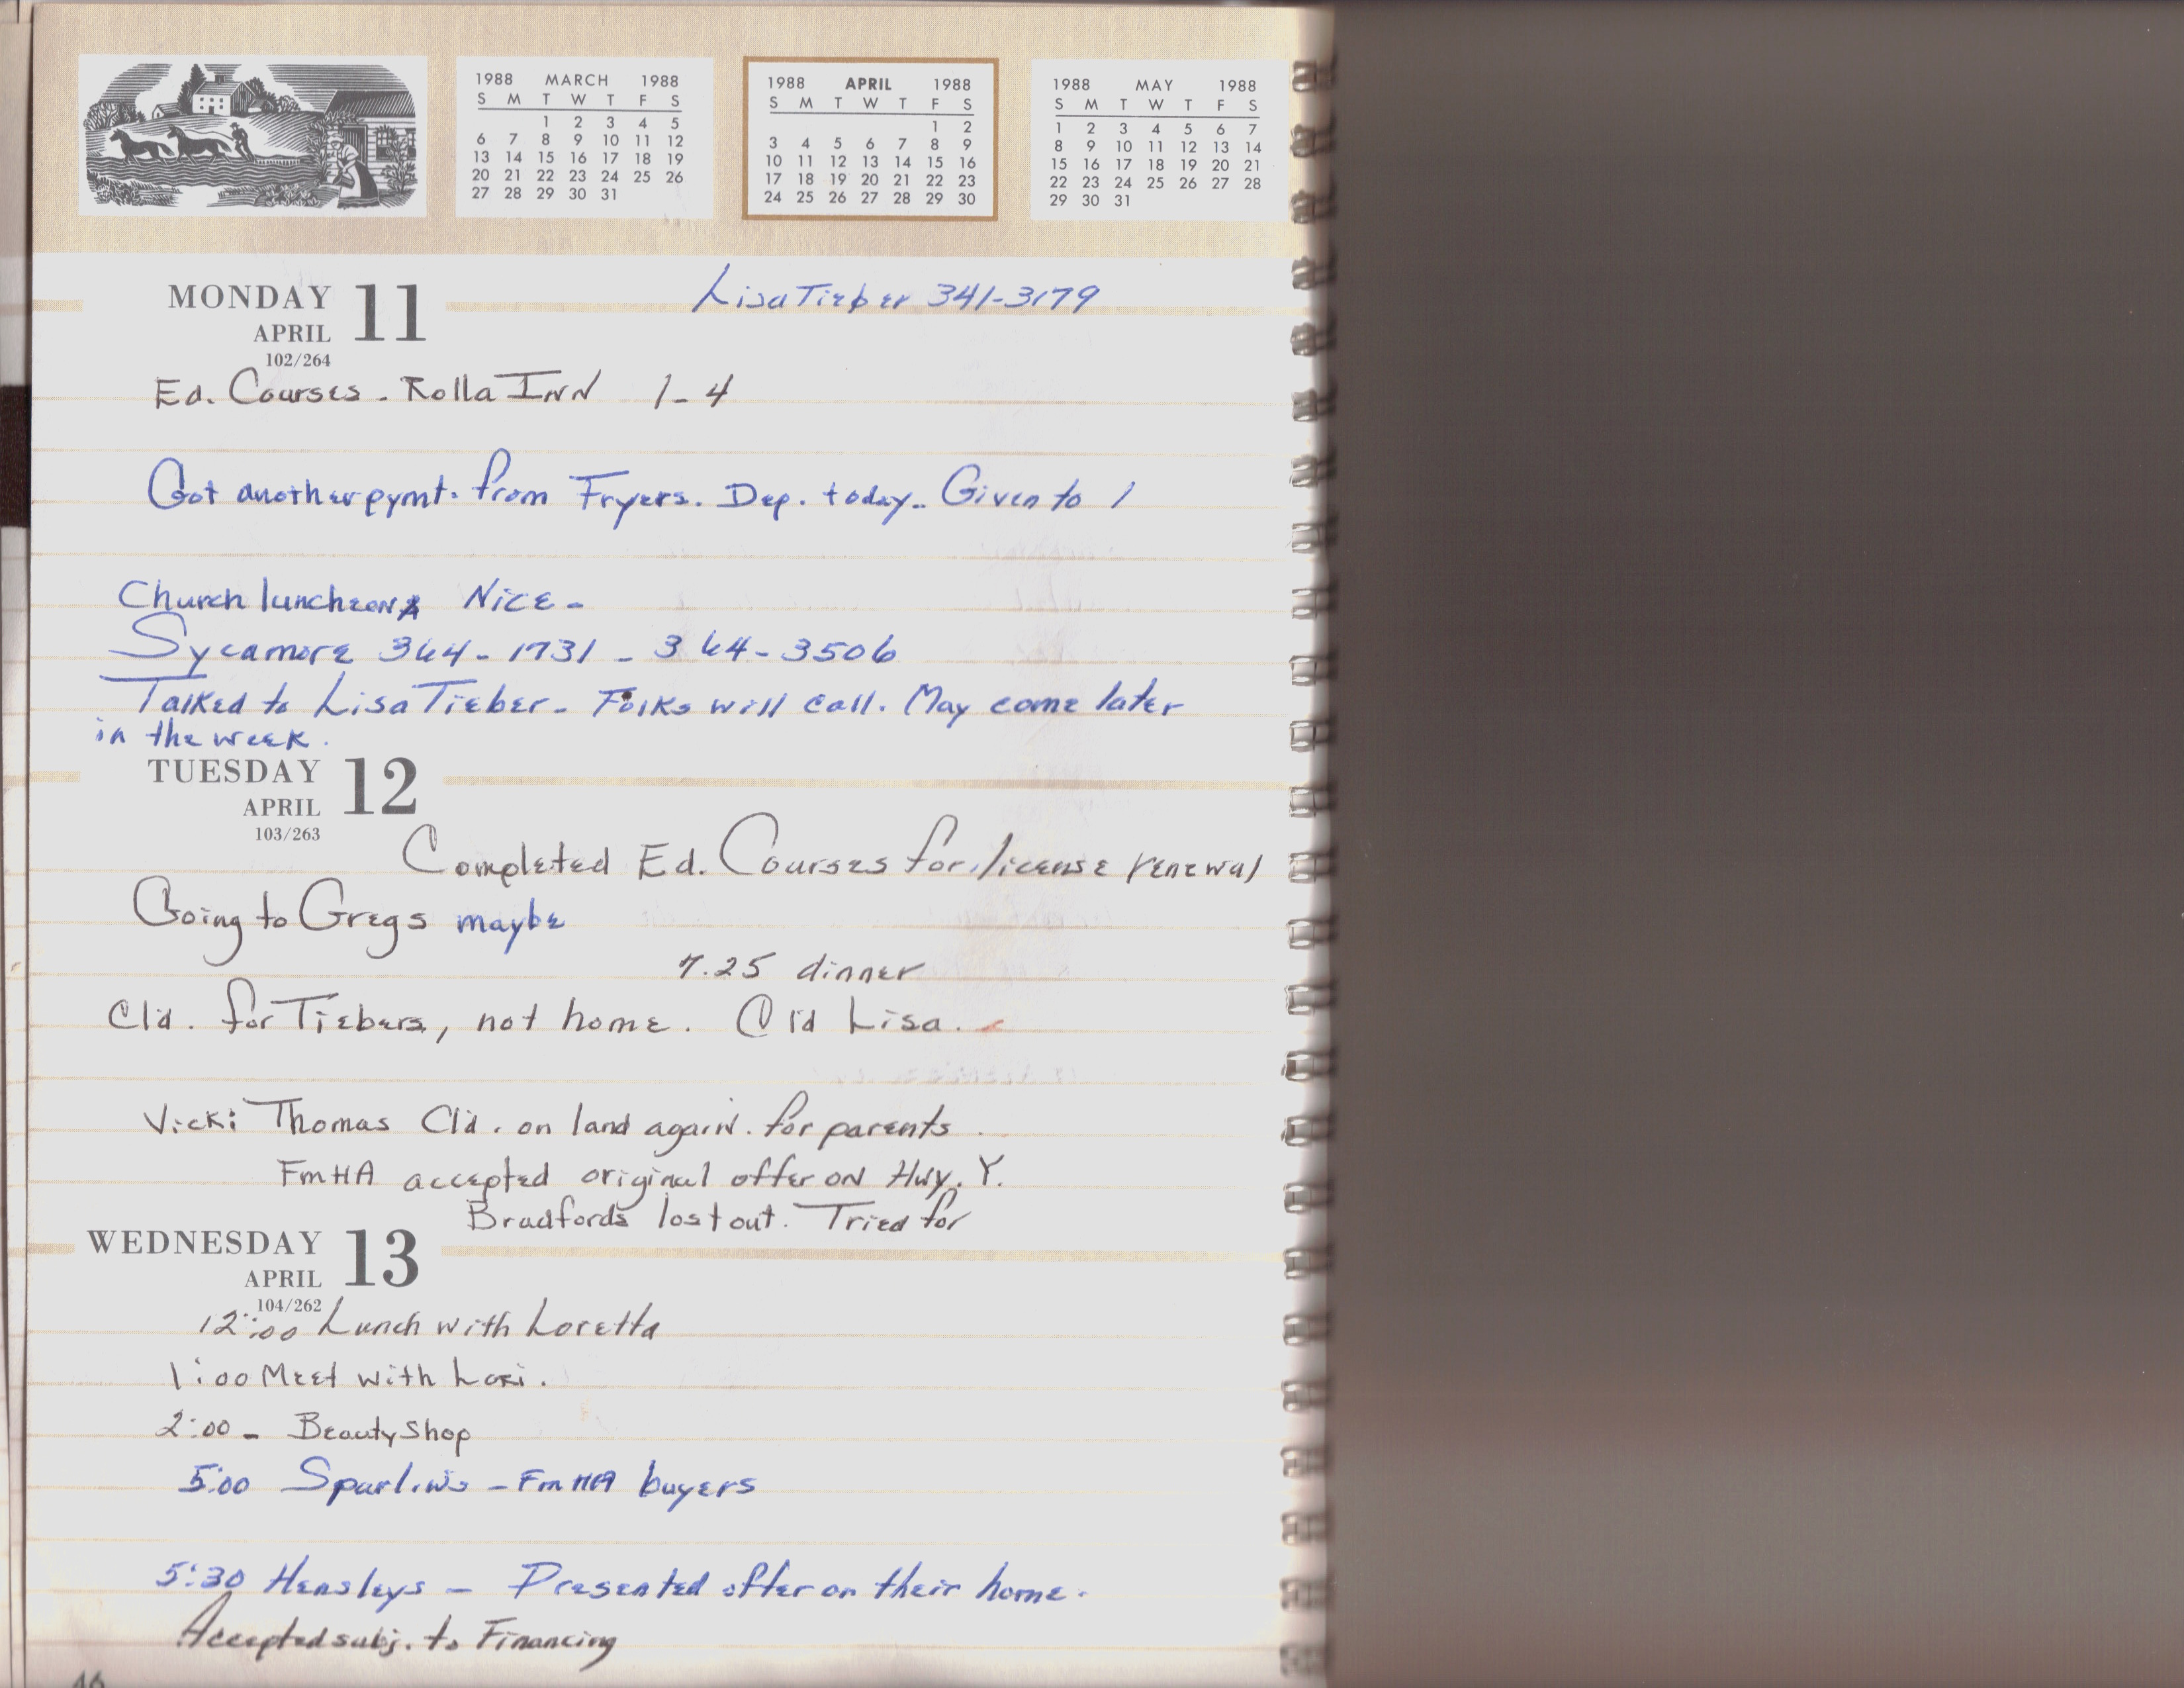 1988 MARCH 1988
S M T W T F S
1 2 3 4 5
6 7 8 9 10 11 12
13 14 15 16 17 18 19
20 21 22 23 24 25 26
27 28 29 30 31
1988 APRIL 1988
S M T W T F S
1 2
3 4 5 6 7 8 9
10 11 12 13 14 15 16
17 18 19 20 21 22 23
24 25 26 27 28 29 30
1988 MAY 1988
S M T W T F S
1 2 3 4 5 6 7
8 9 10 11 12 13 14
15 16 17 18 19 20 21
22 23 24 25 26 27 28
29 30 31
Lisa Tieber 341-3179
MONDAY 11
APRIL
102/264
Ed. Courses - Rolla INN 1-4
Got another pymt. from Fryers. Dep. today.. Given to 1
Church luncheon Nice -
Sycamore 364-1731 - 364-3506
Talked to Lisa Tieber - Folks will call. May come later
in the week.
TUESDAY 12
APRIL
103/263
Completed Ed. Courses for license renewal
Going to Gregs maybe
7.25 dinner
Cl'd. for Tiebers, not home. Cl'd Lisa.
Vicki Thomas Cl'd. on land again. for parents
FmHA accepted original offer on Hwy. Y.
Bradfords lost out. Tried for
WEDNESDAY 13
APRIL
104/262
12:00 Lunch with Loretta
1:00 Meet with Lori.
2:00 - Beauty Shop
5:00 - FmHA buyers
5:30 Hensleys - Presented offer on their home.
Accepted subj. to Financing
46